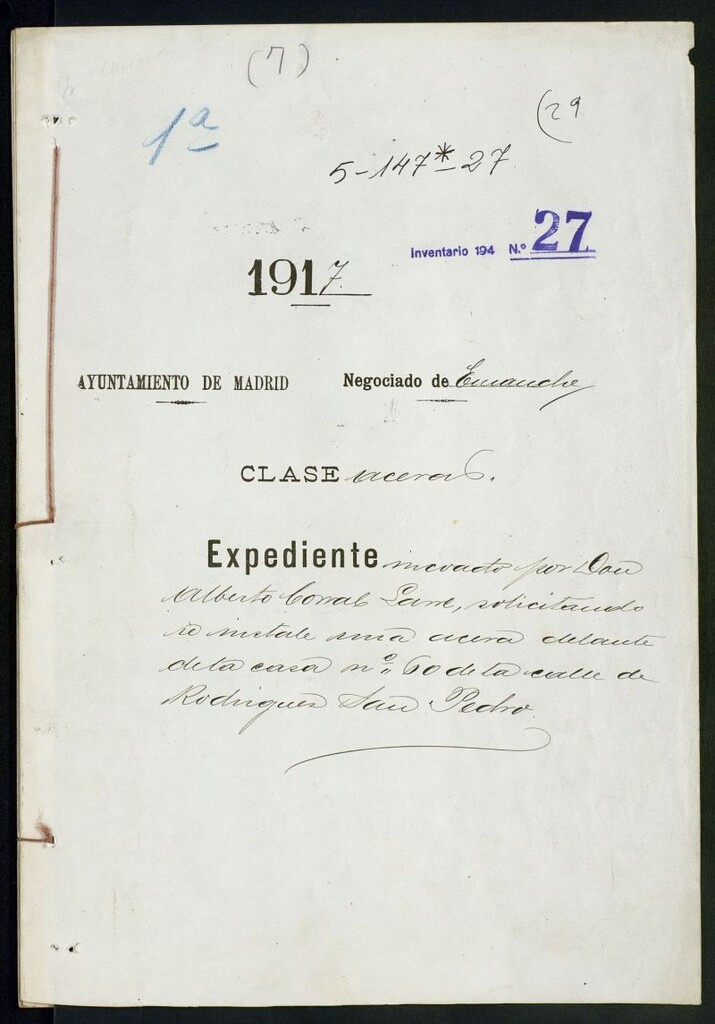 (7)
(29
1ª
5-147*-27
Inventario 194 N.º 27
1917.
AYUNTAMIENTO DE MADRID Negociado de Ensanche
CLASE aceras.
Expediente incoado por Don
Alberto Corral Larre, solicitando
se instale una acera delante
de la casa nº 60 de la calle de
Rodriguez San Pedro.